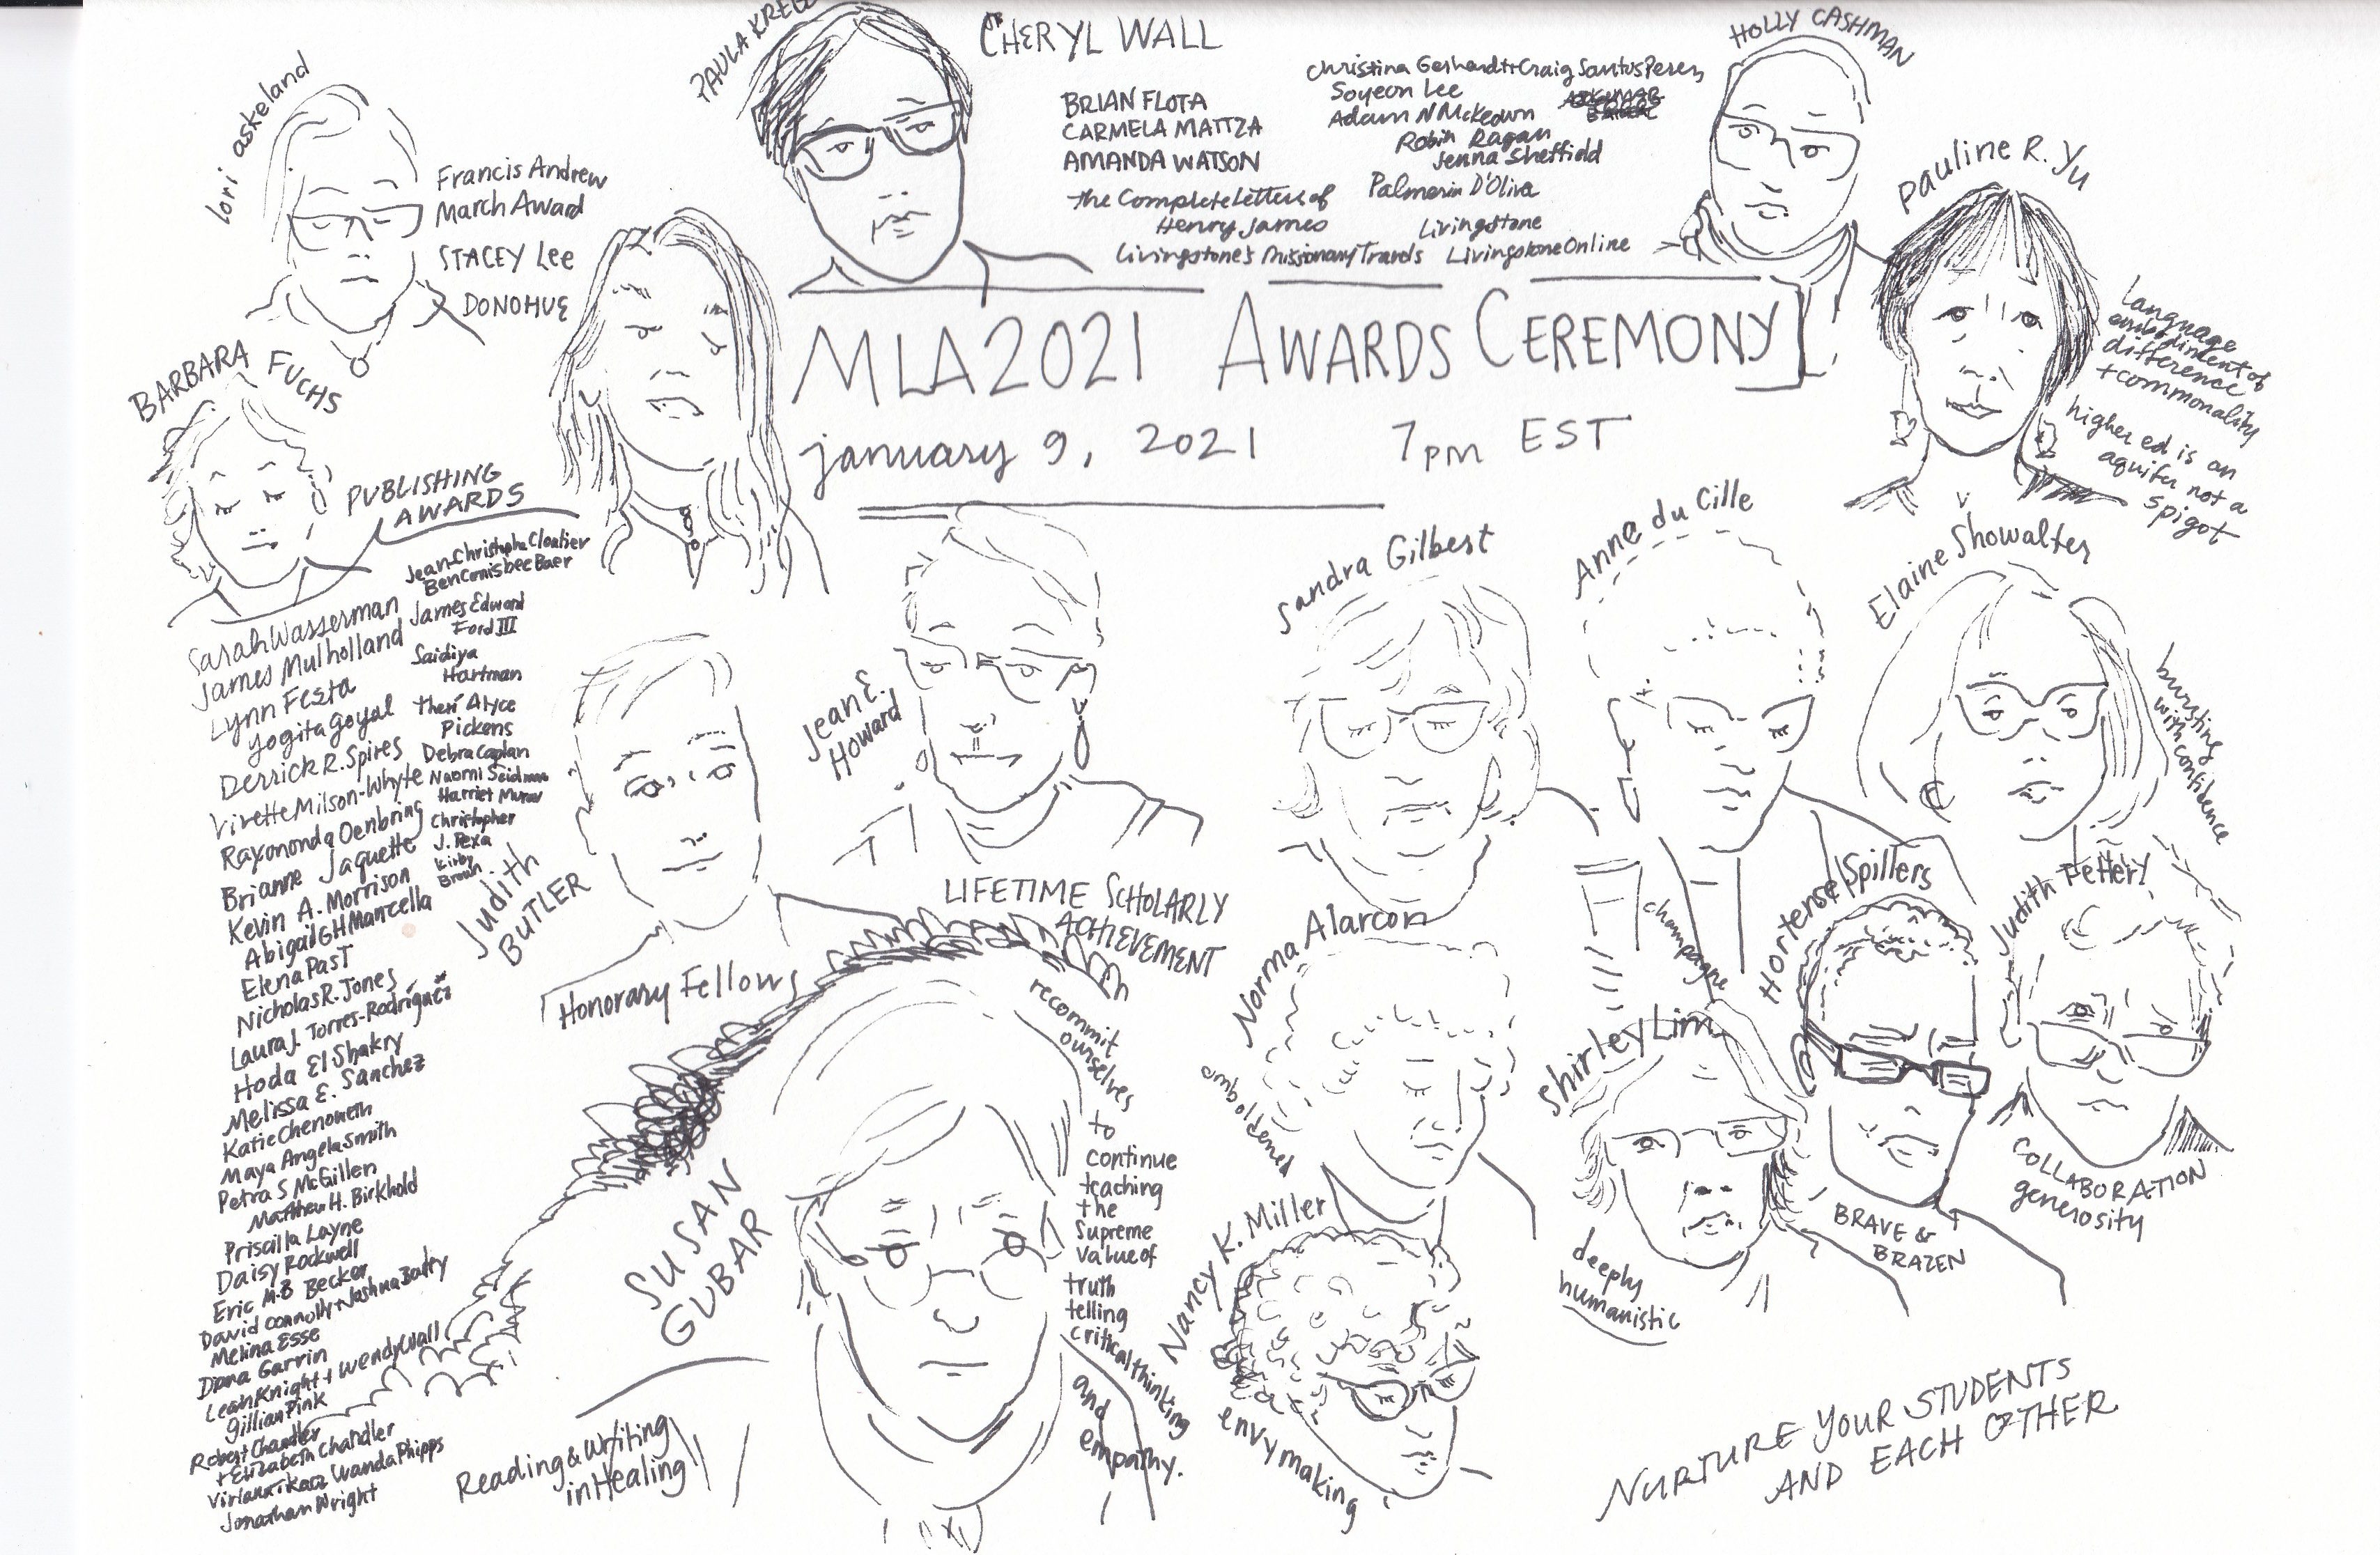 lori askeland
Francis Andrew
March Award
STACEY Lee
DONOHUE
PAULA KREBS
CHERYL WALL
BRIAN FLOTA
CARMELA MATTZA
AMANDA WATSON
The Complete Letters of
Henry James
Livingstone's Missionary Travels
Christina Gerhardt + Craig Santos Perez
Soyeon Lee
Adam N McKeown
Robin Ragan
Jenna Sheffield
Palmerin D'Oliva
Livingstone
Livingstone Online
HOLLY CASHMAN
Pauline R. Yu
Language
embodiment of
difference
+ commonality
higher ed is an
aquifer not a
spigot
MLA2021 AWARDS CEREMONY
january 9, 2021 7pm EST
BARBARA FUCHS
PUBLISHING
AWARDS
Jean-Christophe Cloutier
Ben Conisbee Baer
James Edward
Ford III
Saidiya
Hartman
Therí Alyce
Pickens
Debra Caplan
Naomi Seidman
Harriet Murav
Christopher
J. Pexa
Kirby
Brown
Sarah Wasserman
James Mulholland
Lynn Festa
Yogita Goyal
Derrick R. Spires
Vivette Milson-Whyte
Raymond Oenbring
Brianne Jaquette
Kevin A. Morrison
Abigail GH Mancella
Elena Past
Nicholas R. Jones
Laura J. Torres-Rodríguez
Hoda El Shakry
Melissa E. Sanchez
Katie Chenoweth
Maya Angela Smith
Petra S McGillen
Matthew H. Birkhold
Priscilla Layne
Daisy Rockwell
Eric M.B Becker
David Connolly + Joshua Barley
Melina Esse
Diana Garvin
Leah Knight + Wendy Wall
Gillian Pink
Robert Chandler
+ Elizabeth Chandler
Virlana Tkacz Wanda Phipps
Jonathan Wright
Judith
BUTLER
Honorary Fellows
Jean E.
Howard
Sandra Gilbert
Anne du Cille
champagne
Elaine Showalter
bursting
with confidence
LIFETIME SCHOLARLY
ACHIEVEMENT
SUSAN
GUBAR
recommit
ourselves
to
continue
teaching
the
Supreme
value of
truth
telling
critical thinking
and
empathy.
Reading & Writing
in Healing
Norma Alarcon
emboldened
Nancy K. Miller
envy making
Shirley Lim
deeply
humanistic
Hortense Spillers
BRAVE &
BRAZEN
Judith Fetterly
COLLABORATION
generosity
NURTURE YOUR STUDENTS
AND EACH OTHER